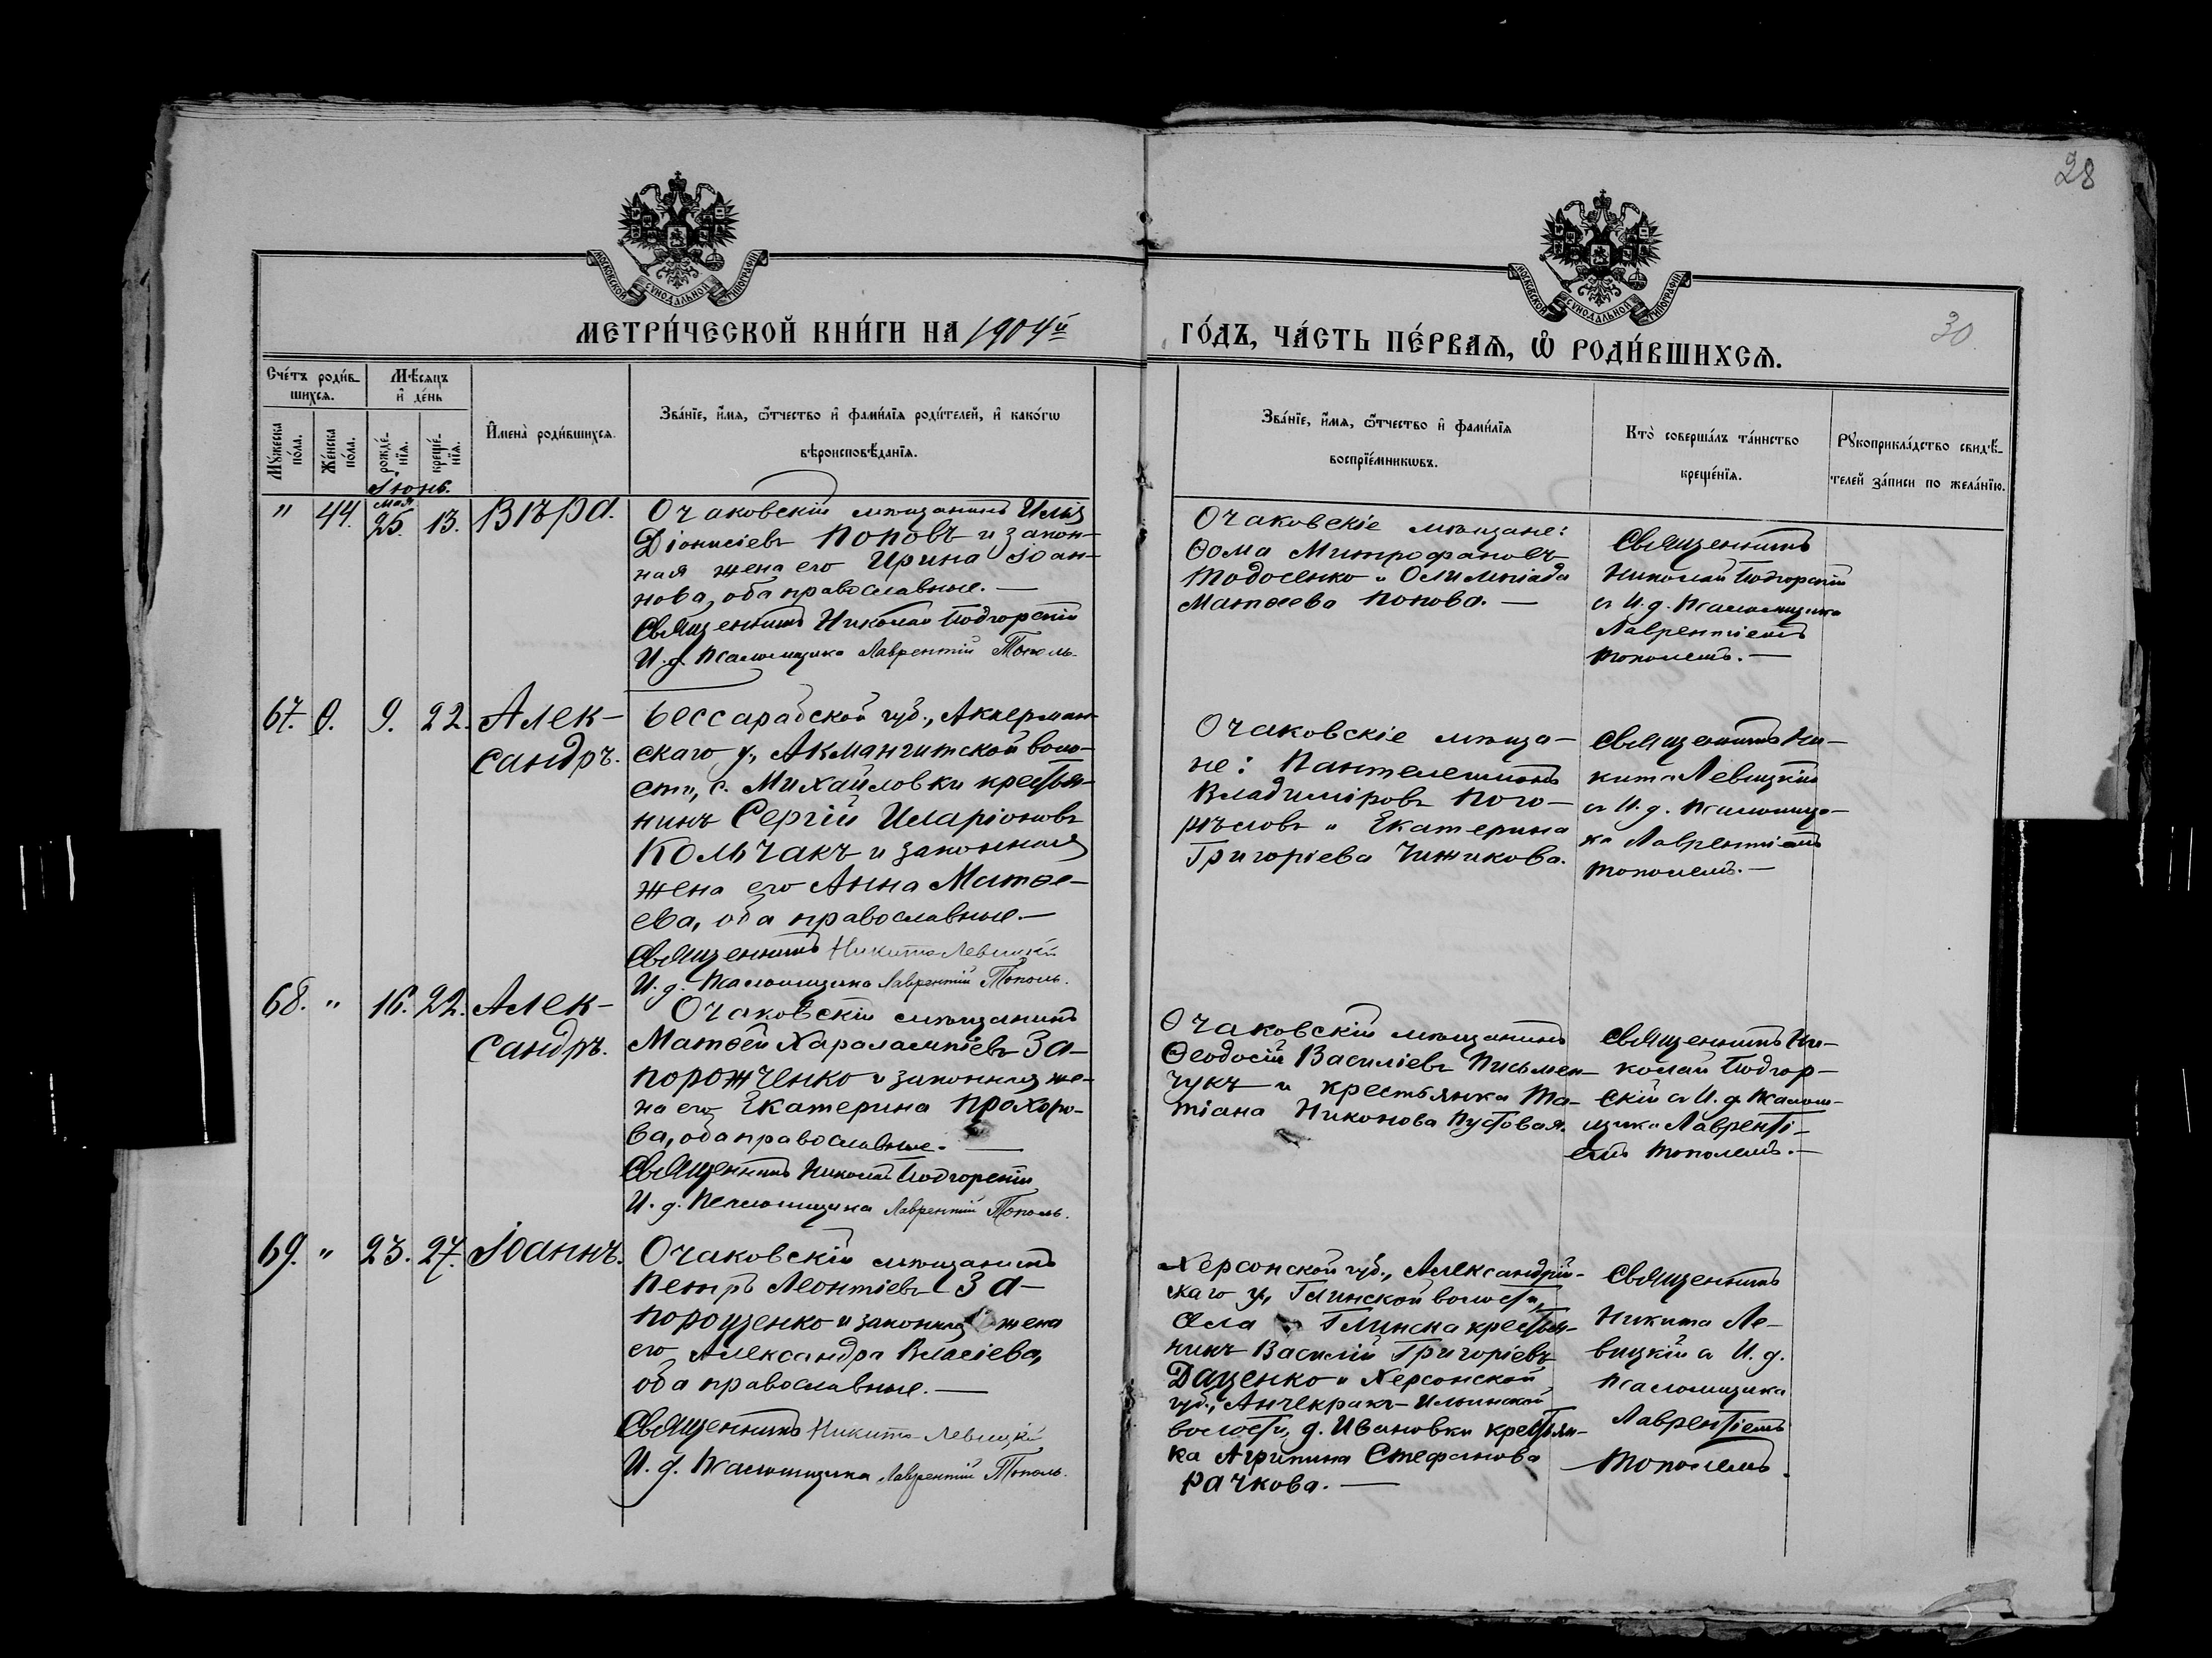 28
30
МОСКОВСКОЙ СѴНОДАЛЬНОЙ ТИПОГРАФІИ
МОСКОВСКОЙ СѴНОДАЛЬНОЙ ТИПОГРАФІИ
МЕТРИ́ЧЕСКОЙ КНИ́ГИ НА 1904й
ГО́ДЪ, ЧА́СТЬ ПЕ́РВАѦ, Ѡ҆ РОДИ́ВШИХСѦ.
Сче́тъ роди́в-
шихсѧ.
Мѣ́сѧцъ
и҆ де́нь
Мꙋ́жеска
по́ла.
Же́нска
по́ла.
рожде́-
нїѧ.
креще́-
нїѧ.
И҆мена̀ роди́вшихсѧ.
Зва́нїе, и҆́мѧ, ѻ҆́тчество и҆ фами́лїѧ роди́телей, и҆ како́гѡ
вѣроисповѣ́данїѧ.
Зва́нїе, и҆́мѧ, ѻ҆́тчество и҆ фами́лїѧ
воспрїе́мникѡвъ.
Кто̀ соверша́лъ та́инство
креще́нїѧ.
Рꙋкоприкла́дство свидѣ́-
телей за́писи по жела́нїю.
Іюнь.
" 44. Мая 25. 13. Вѣра.
Очаковскій мѣщанинъ Илья
Діонисіевъ Поповъ и закон-
ная жена его Ирина Іоан-
нова, оба православные. —
Священникъ Николай Подгорскій
И. д. Псаломщика Лаврентій Тополь.
Очаковскіе мѣщане:
Ѳома Митрофановъ
Тодосенко и Олимпіада
Матѳеева Попова. —
Священникъ
Николай Подгорскій
съ И. д. Псаломщика
Лаврентіемъ
Тополемъ. —
67. 0. 9. 22. Алек-
сандръ.
Бессарабской губ., Аккерман-
скаго у., Акмангитской воло-
сти, с. Михайловки крестья-
нинъ Сергій Иларіоновъ
Кольчакъ и законная
жена его Анна Матѳе-
ева, оба православные. —
Священникъ Никита Левицкій
И. д. Псаломщика Лаврентій Тополь.
Очаковскіе мѣща-
не: Пантелеимонъ
Владиміровъ Пого-
рѣловъ и Екатерина
Григоріева Чижикова.
Священникъ Ни-
кита Левицкій
съ И. д. Псаломщи-
ка Лаврентіемъ
Тополемъ. —
68. " 16. 22. Алек-
сандръ.
Очаковскій мѣщанинъ
Матѳей Харалампіевъ За-
порожченко и законная же-
на его Екатерина Прохоро-
ва, оба православные. —
Священникъ Николай Подгорскій
И. д. Псаломщика Лаврентій Тополь.
Очаковскій мѣщанинъ
Ѳеодосій Василіевъ Письмен-
чукъ и крестьянка Та-
тіана Никонова Пустовая.
Священникъ Ни-
колай Подгор-
скій съ И. д. Псалом-
щика Лавренті-
емъ Тополемъ. —
69. " 23. 27. Іоаннъ.
Очаковскій мѣщанинъ
Петръ Леонтіевъ За-
порощенко и законная жена
его Александра Власіева,
оба православные. —
Священникъ Никита Левицкій
И. д. Псаломщика Лаврентій Тополь.
Херсонской губ., Александрій-
скаго у., Глинской волости,
села Глинска крестья-
нинъ Василій Григоріевъ
Даценко и Херсонской
губ., Анчекракъ-Ильинской
волости, д. Ивановки крестьян-
ка Агрипина Стефанова
Рачкова. —
Священникъ
Никита Ле-
вицкій съ И. д.
Псаломщика
Лаврентіемъ
Тополемъ.